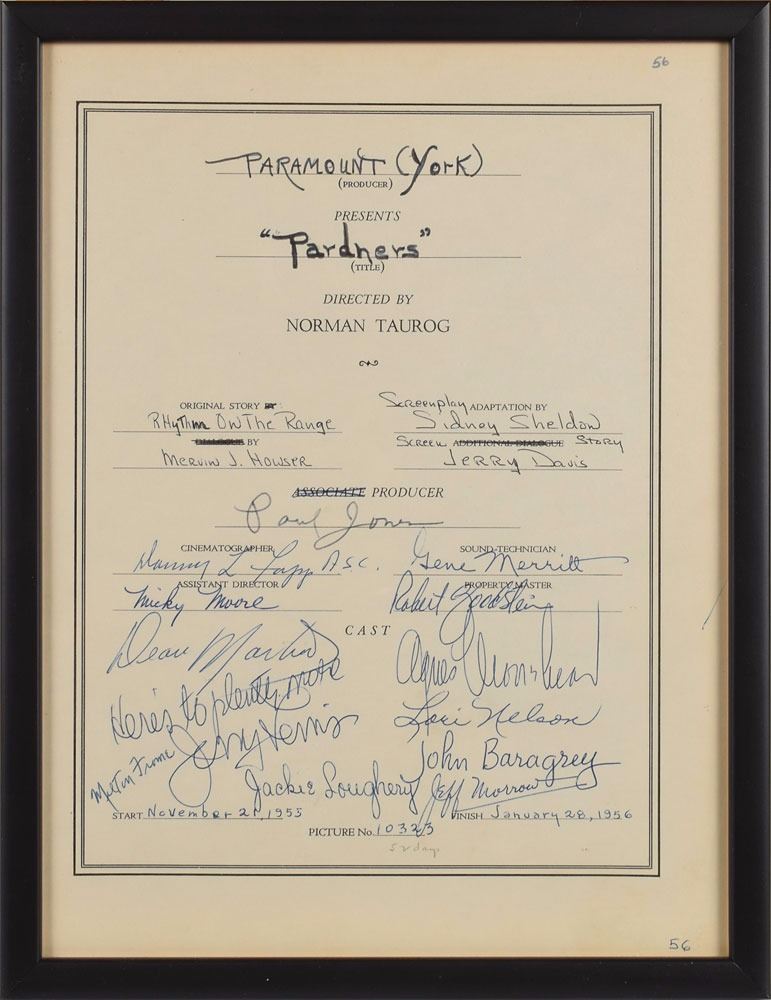 56
PARAMOUNT (York)
(PRODUCER)
PRESENTS
"Pardners"
(TITLE)
DIRECTED BY
NORMAN TAUROG
ORIGINAL STORY BY
RHythm On The Range
DIALOGUE BY
Mervin J. Howser
Screenplay ADAPTATION BY
Sidney Sheldon
Screen ADDITIONAL DIALOGUE Story
Jerry Davis
ASSOCIATE PRODUCER
Paul Jones
CINEMATOGRAPHER
A.S.C.
SOUND TECHNICIAN
Gene Merritt
ASSISTANT DIRECTOR
Micky Moore
PROPERTY MASTER
Robert Goodstein
CAST
Dean Martin
Agnes Moorehead
Here's to plenty more
Jerry Lewis
Lori Nelson
John Baragrey
Milton Frome
Jackie Loughery
Jeff Morrow
START November 21, 1955
FINISH January 28, 1956
PICTURE No. 10323
52 days
56